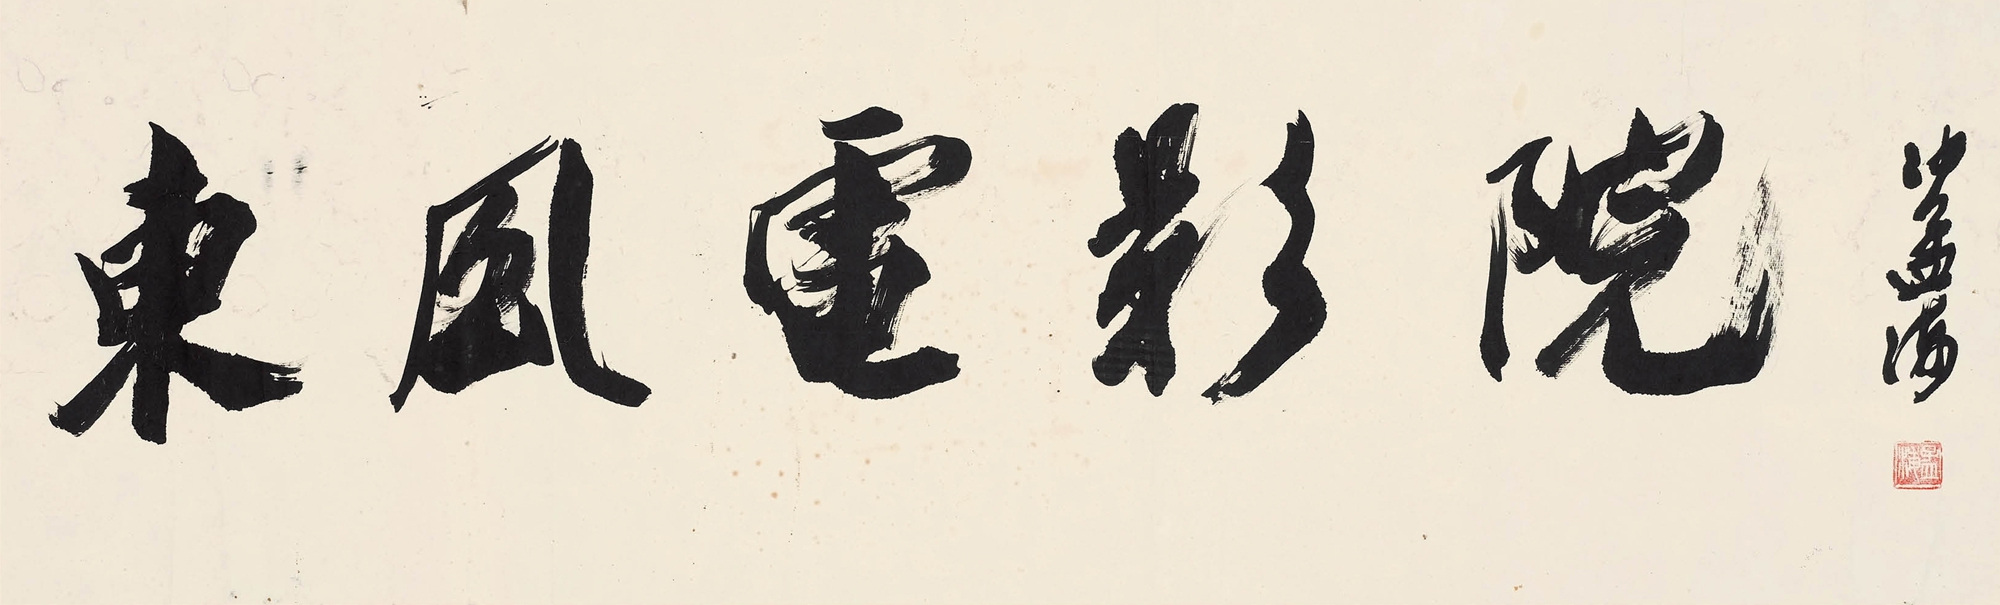 東風電影院
沙孟海
孟海